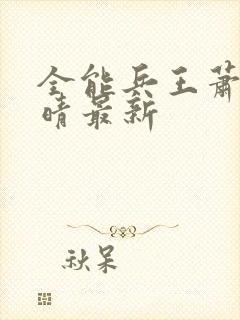 全能兵王萧
晴最新
秋呆